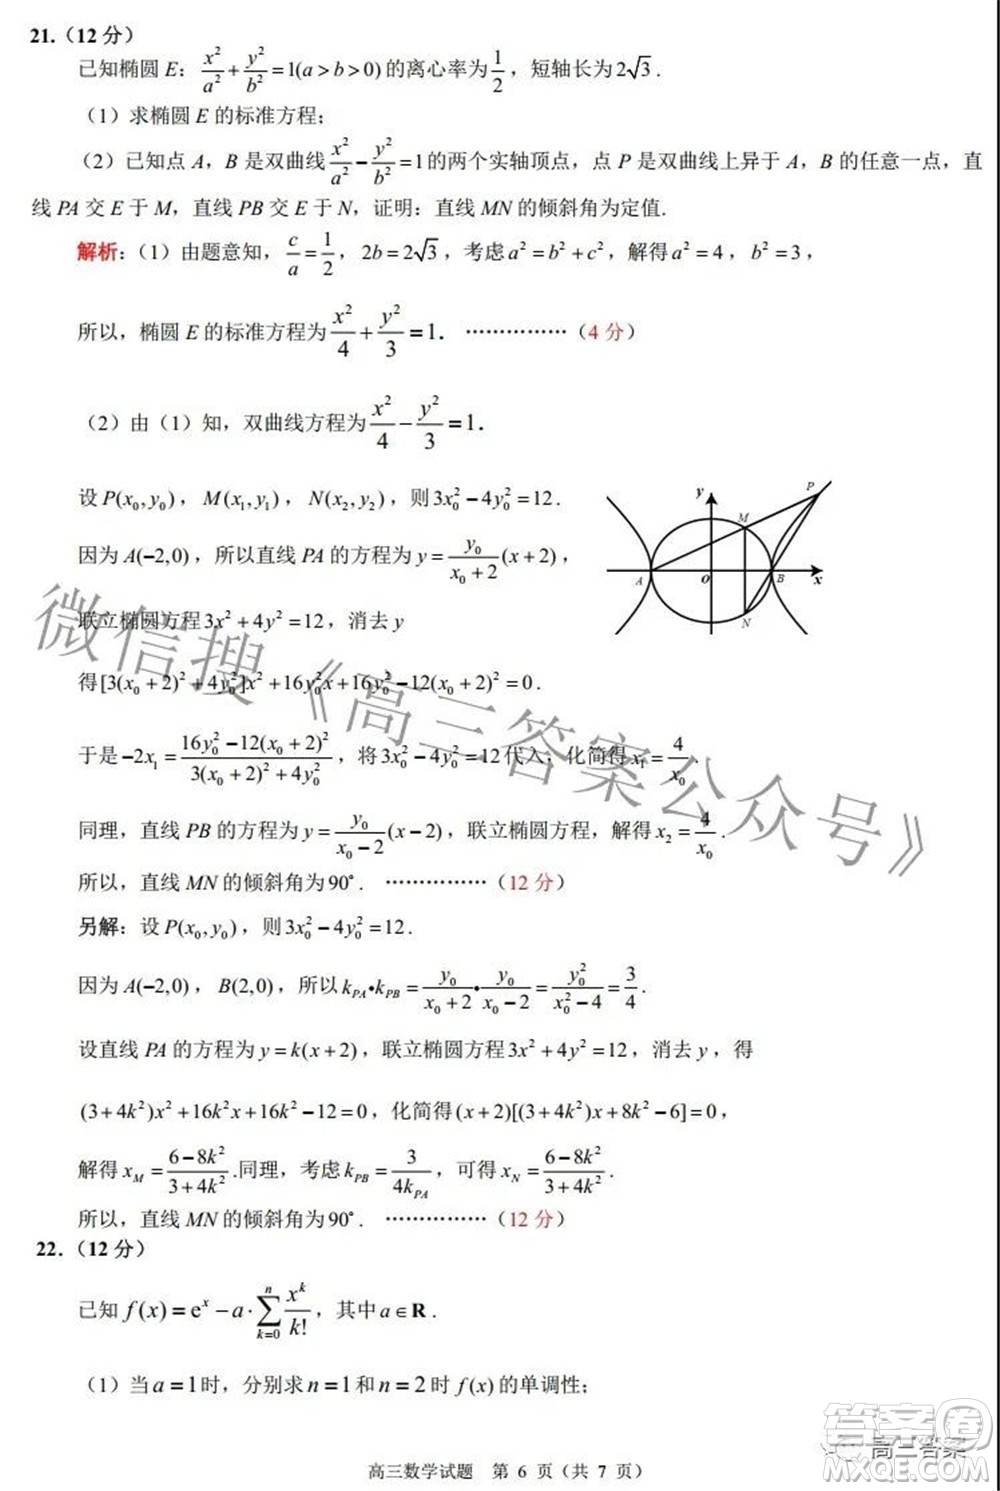 21.（12 分）
已知椭圆 E：x²/a² + y²/b² = 1(a > b > 0) 的离心率为 1/2，短轴长为 2√3．
（1）求椭圆 E 的标准方程；
（2）已知点 A，B 是双曲线 x²/a² − y²/b² = 1 的两个实轴顶点，点 P 是双曲线上异于 A，B 的任意一点，直
线 PA 交 E 于 M，直线 PB 交 E 于 N，证明：直线 MN 的倾斜角为定值.
解析：（1）由题意知，c/a = 1/2，2b = 2√3，考虑 a² = b² + c²，解得 a² = 4，b² = 3，
所以，椭圆 E 的标准方程为 x²/4 + y²/3 = 1．……………（4 分）
（2）由（1）知，双曲线方程为 x²/4 − y²/3 = 1．
设 P(x₀, y₀)，M(x₁, y₁)，N(x₂, y₂)，则 3x₀² − 4y₀² = 12．
因为 A(−2,0)，所以直线 PA 的方程为 y = y₀/(x₀ + 2) (x + 2)，
联立椭圆方程 3x² + 4y² = 12，消去 y
得 [3(x₀ + 2)² + 4y₀²]x² + 16y₀²x + 16y₀² − 12(x₀ + 2)² = 0．
于是 −2x₁ = (16y₀² − 12(x₀ + 2)²)/(3(x₀ + 2)² + 4y₀²)，将 3x₀² − 4y₀² = 12 代入，化简得 x₁ = 4/x₀．
同理，直线 PB 的方程为 y = y₀/(x₀ − 2) (x − 2)，联立椭圆方程，解得 x₂ = 4/x₀．
所以，直线 MN 的倾斜角为 90°．……………（12 分）
另解：设 P(x₀, y₀)，则 3x₀² − 4y₀² = 12．
因为 A(−2,0)，B(2,0)，所以 k_PA • k_PB = y₀/(x₀ + 2) • y₀/(x₀ − 2) = y₀²/(x₀² − 4) = 3/4．
设直线 PA 的方程为 y = k(x + 2)，联立椭圆方程 3x² + 4y² = 12，消去 y，得
(3 + 4k²)x² + 16k²x + 16k² − 12 = 0，化简得 (x + 2)[(3 + 4k²)x + 8k² − 6] = 0，
解得 x_M = (6 − 8k²)/(3 + 4k²).同理，考虑 k_PB = 3/(4k_PA)，可得 x_N = (6 − 8k²)/(3 + 4k²)．
所以，直线 MN 的倾斜角为 90°．……………（12 分）
22.（12 分）
已知 f(x) = eˣ − a · ∑_{k=0}^{n} xᵏ/k!，其中 a ∈ R．
（1）当 a = 1 时，分别求 n = 1 和 n = 2 时 f(x) 的单调性；
高三数学试题 第 6 页（共 7 页）
y
P
M
A
O
B
x
N
微信搜《高三答案公众号》
高三答案
答案圈
MXQE.COM